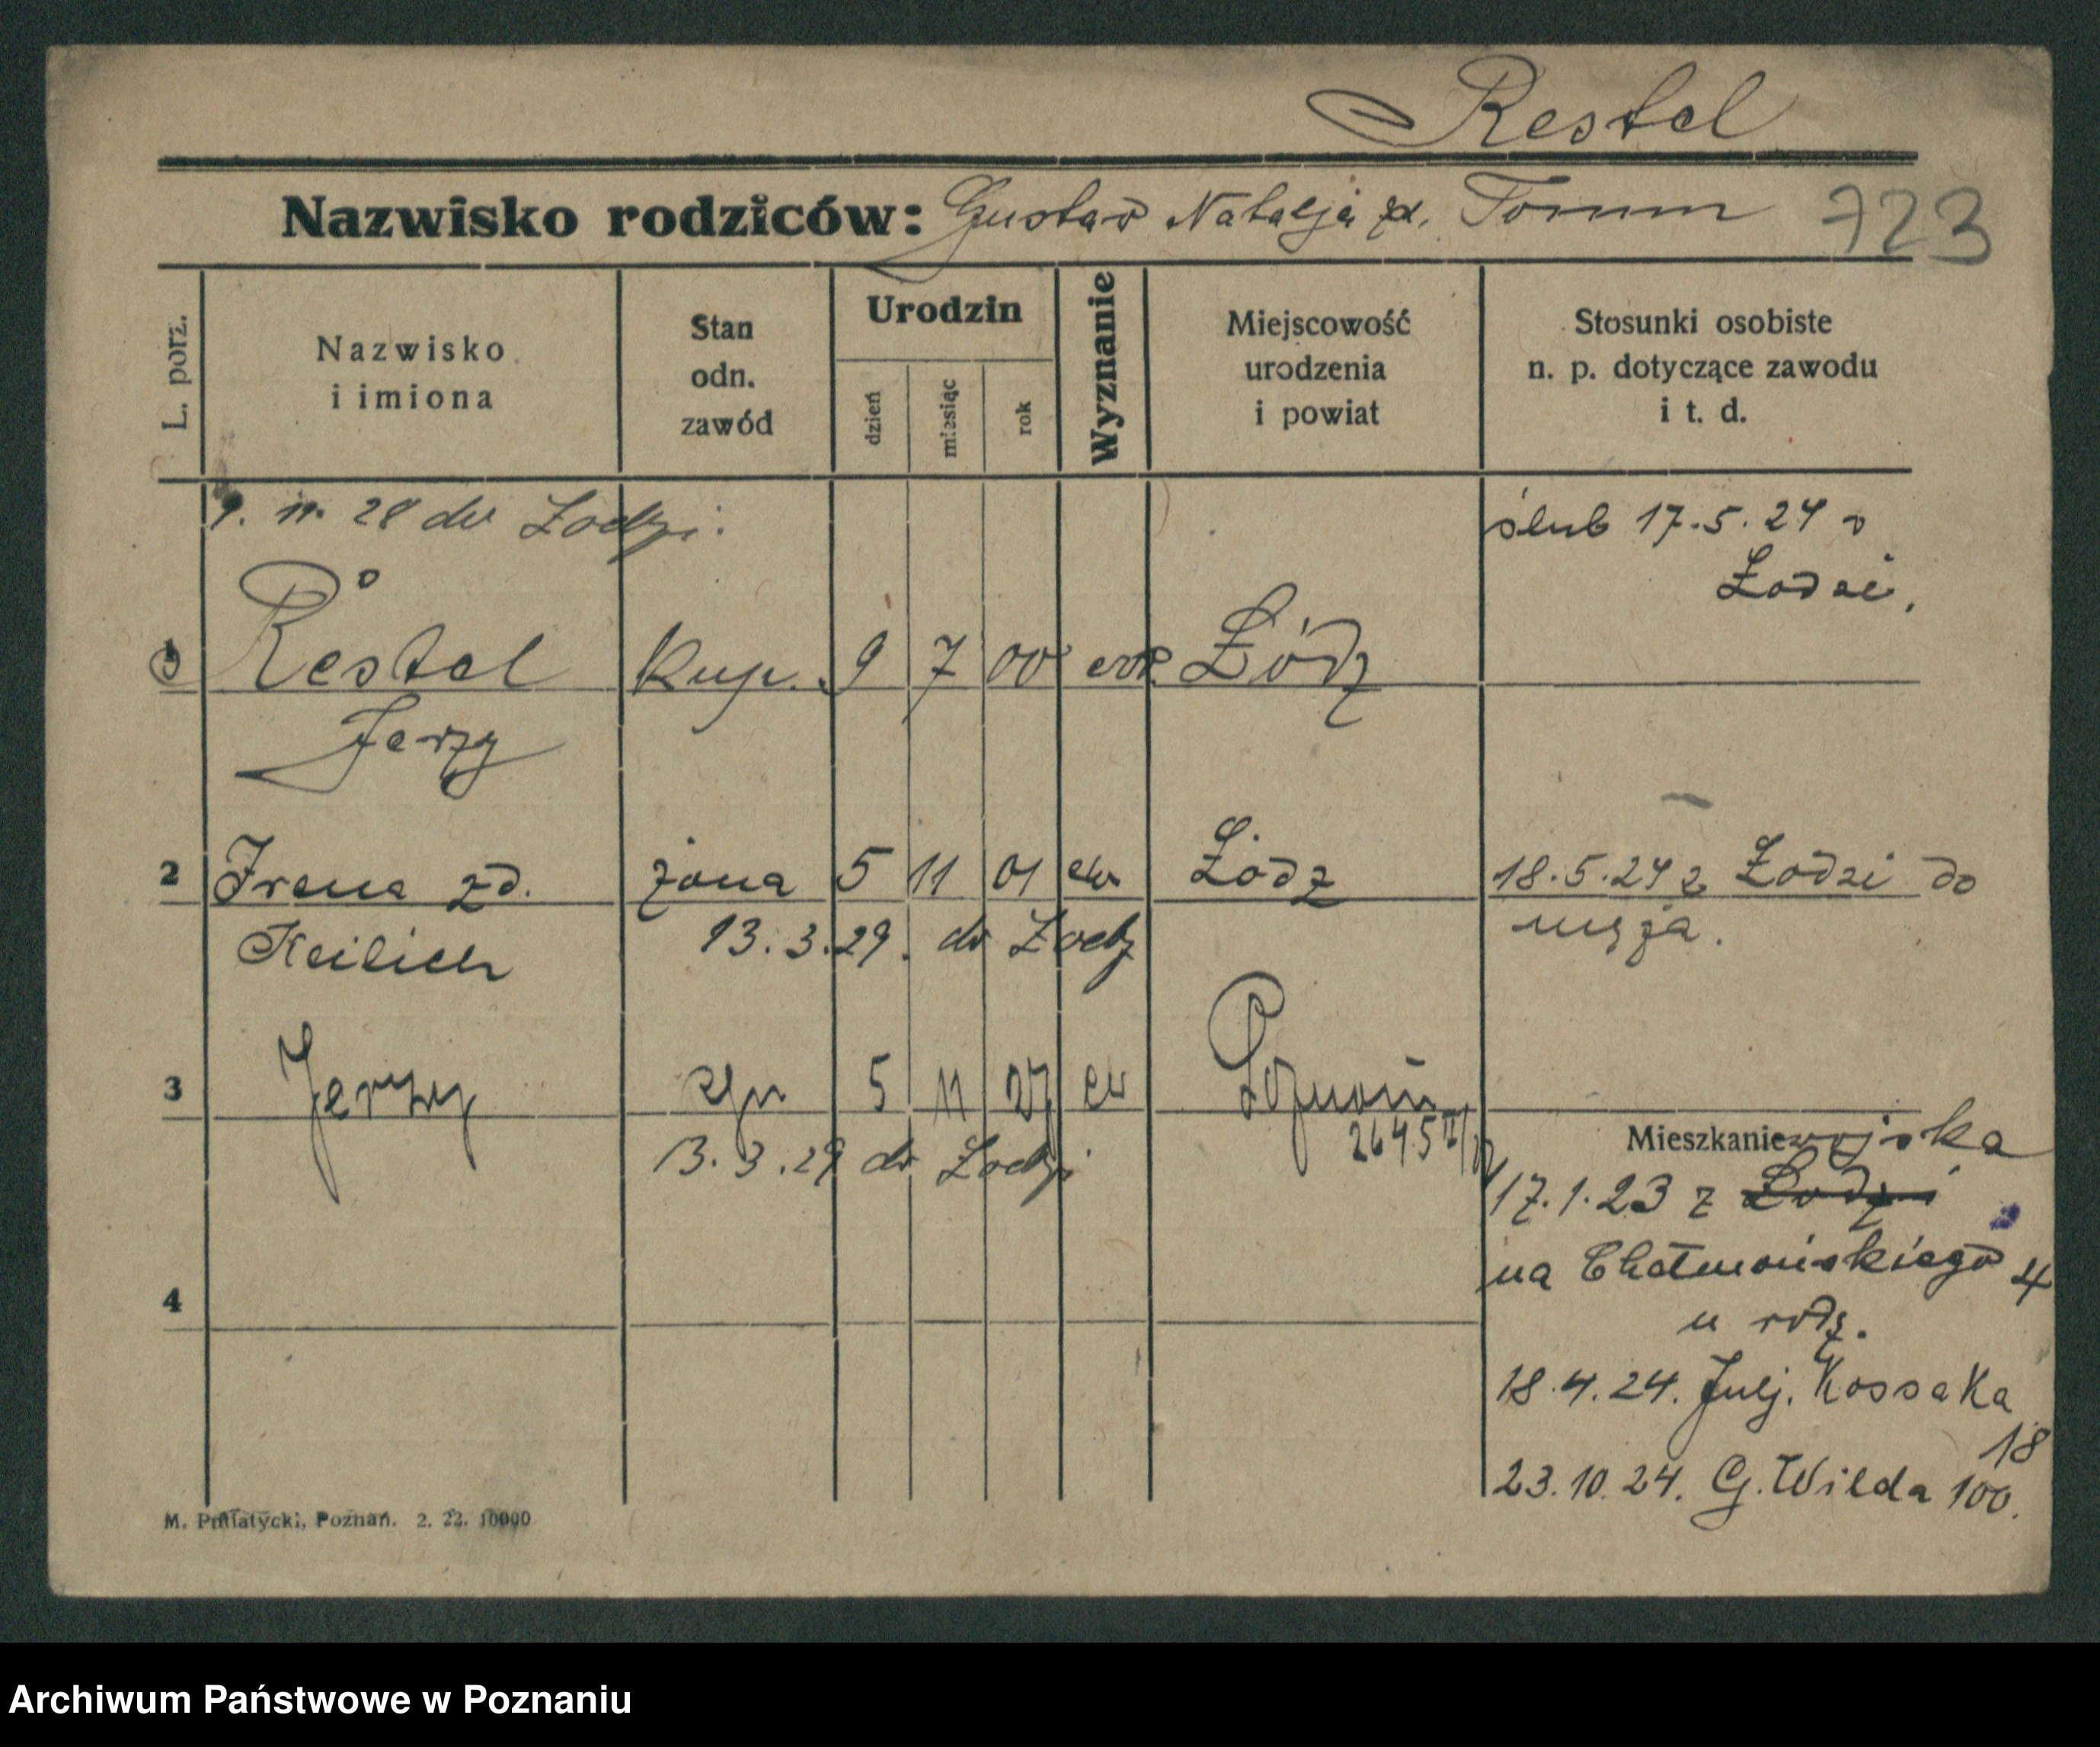 Restel
Nazwisko rodziców: Gustaw Natalja zd. Tomm 723
L. porz.
Nazwisko
i imiona
Stan
odn.
zawód
Urodzin
dzień
miesiąc
rok
Wyznanie
Miejscowość
urodzenia
i powiat
Stosunki osobiste
n. p. dotyczące zawodu
i t. d.
9. 11. 28 do Łodzi.
ślub 17.5.24 w
Łodzi.
1 Restel kup. 9 7 00 ew. Łódź
Jerzy
2 Irena zd. żona 5 11 01 ew Łódź 18.5.24 z Łodzi do
Keilich 13.3.29. do Łodzi męża.
3 Jerzy syn 5 11 27 ew Poznań
2645
13.3.29 do Łodzi
Mieszkanie wojska
17.1.23 z Łodzi
na Chełmońskiego 4
u rodz.
4
18.4.24. Julj. Kossaka
18
23.10.24. G. Wilda 100.
M. Pniatycki, Poznań. 2. 22. 10000
Archiwum Państwowe w Poznaniu